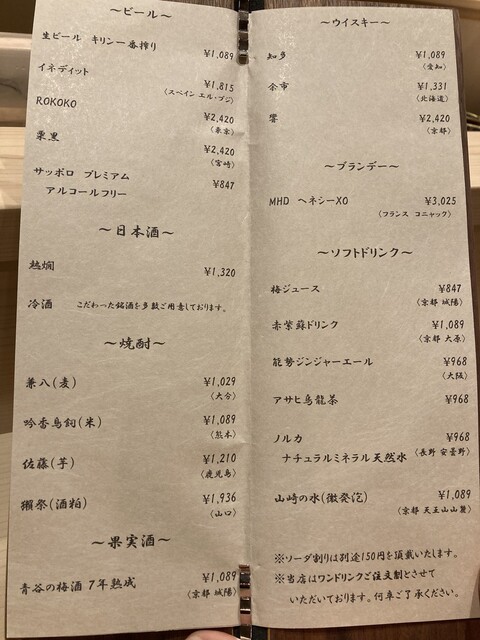 ～ビール～
生ビール キリン一番搾り ¥1,089
イネディット ¥1,815
(スペイン エル・ブジ)
ROKOKO ¥2,420
(東京)
栗黒 ¥2,420
(宮崎)
サッポロ プレミアム
アルコールフリー ¥847
～日本酒～
熱燗 ¥1,320
冷酒 こだわった銘酒を多数ご用意しております。
～焼酎～
兼八(麦) ¥1,029
(大分)
吟香鳥飼(米) ¥1,089
(熊本)
佐藤(芋) ¥1,210
(鹿児島)
獺祭(酒粕) ¥1,936
(山口)
～果実酒～
青谷の梅酒 7年熟成 ¥1,089
(京都 城陽)
～ウイスキー～
知多 ¥1,089
(愛知)
余市 ¥1,331
(北海道)
響 ¥2,420
(京都)
～ブランデー～
MHD ヘネシーXO ¥3,025
(フランス コニャック)
～ソフトドリンク～
梅ジュース ¥847
(京都 城陽)
赤紫蘇ドリンク ¥1,089
(京都 大原)
能勢ジンジャーエール ¥968
(大阪)
アサヒ烏龍茶 ¥968
ノルカ ¥968
ナチュラルミネラル天然水 (長野 安曇野)
山崎の水(微発泡) ¥1,089
(京都 天王山山麓)
※ソーダ割りは別途150円を頂戴いたします。
※当店はワンドリンクご注文制とさせて
いただいております。何卒ご了承ください。